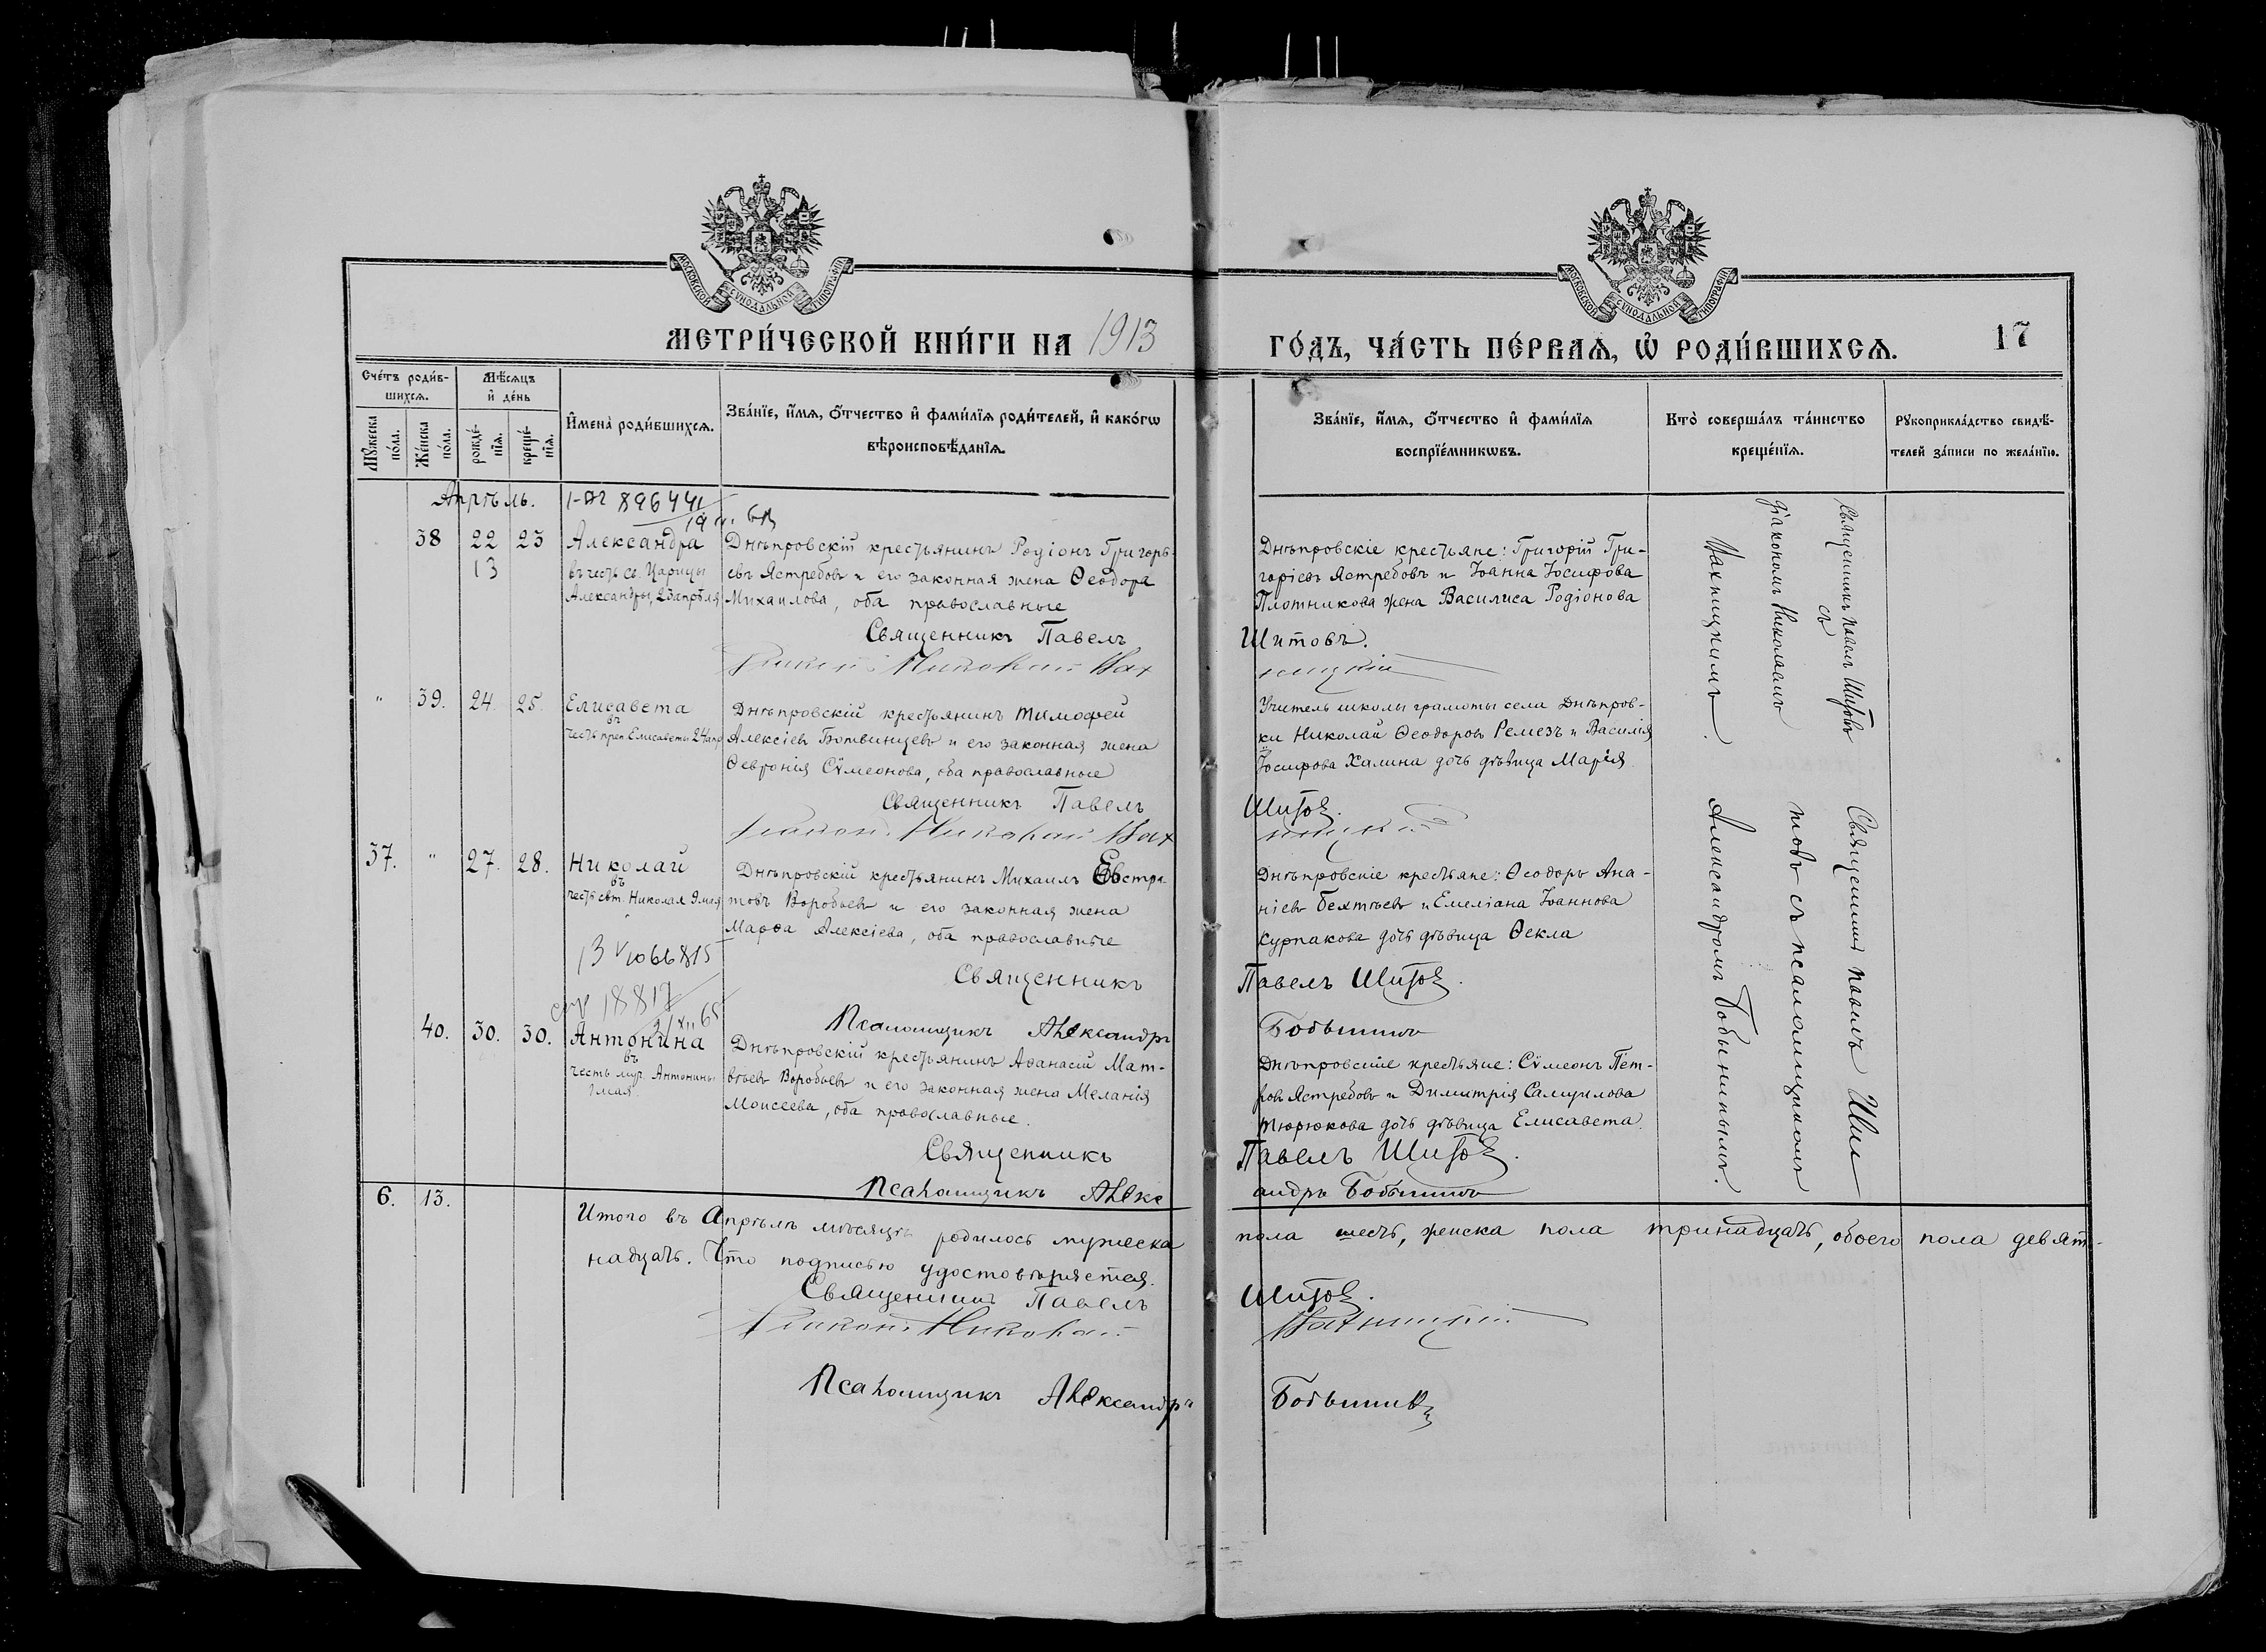 МОСКОВСКОЙ СУНОДАЛЬНОЙ ТИПОГРАФІИ
МОСКОВСКОЙ СУНОДАЛЬНОЙ ТИПОГРАФІИ
МЕТРИ́ЧЕСКОЙ КНИ́ГИ НА 1913
ГО́ДЪ, ЧА́СТЬ ПЕ́РВАѦ, Ѡ҆ РОДИ́ВШИХСѦ.
17
Сче́тъ роди́в-
шихсѧ.
Мѣ́сѧцъ
и҆ де́нь
Мꙋ́жеска
по́ла.
Же́нска
по́ла.
рожде́-
нїѧ.
креще́-
нїѧ.
И҆мена̀ роди́вшихсѧ.
Зва́нїе, и҆́мѧ, ѻ҆́тчество и҆ фами́лїѧ роди́телей, и҆ како́гѡ
вѣроисповѣ́данїѧ.
Зва́нїе, и҆́мѧ, ѻ҆́тчество и҆ фами́лїѧ
воспрїе́мникѡвъ.
Кто̀ соверша́лъ та́инство
креще́нїѧ.
Рꙋкоприкла́дство свидѣ́-
телей за́писи по жела́нїю.
Апрѣль.
896441
38
22
23
13
Александра
въ честь св. Царицы
Александры, 23 апрѣля
Днѣпровскій крестьянинъ Родіонъ Григорь-
евъ Ястребовъ и его законная жена Ѳеодора
Михаилова, оба православные
Священникъ Павелъ
Діаконъ Николай Вах
Днѣпровскіе крестьяне: Григорій Гри-
горіевъ Ястребовъ и Іоанна Іосифова
Плотникова жена Василиса Родіонова
Шитовъ.
ницкій
Священникъ Павелъ Шитовъ
съ
діакономъ Николаемъ
Вахницкимъ.
"
39.
24.
25.
Елисавета
въ
честь преп. Елисаветы 24 апр
Днѣпровскій крестьянинъ Тимофей
Алексіевъ Ботвинцевъ и его законная жена
Ѳевронія Сѵмеонова, оба православные
Священникъ Павелъ
Діаконъ Николай Вах
Учитель школы грамоты села Днѣпров-
ки Николай Ѳеодоровъ Ремезъ и Василія
Іосифова Халина дочь дѣвица Марія
Шитовъ.
ницкій
37.
"
27.
28.
Николай
въ
честь свт. Николая 9 мая
Днѣпровскій крестьянинъ Михаилъ Евстра-
товъ Воробьевъ и его законная жена
Марѳа Алексіева, оба православные
Священникъ
Псаломщикъ Александръ
Днѣпровскіе крестьяне: Ѳеодоръ Ана-
ніевъ Бехтѣевъ и Емеліана Іоаннова
Курпакова дочь дѣвица Ѳекла
Павелъ Шитовъ.
Бобынинъ
Священникъ Павелъ Ши
товъ съ псаломщикомъ
Александромъ Бобынинымъ.
1066815
40.
30.
30.
Антонина
въ
честь муч. Антонины
1 мая.
Днѣпровскій крестьянинъ Аѳанасій Мат-
вѣевъ Воробьевъ и его законная жена Меланія
Моисеева, оба православные.
Священникъ
Псаломщикъ Алекс
Днѣпровскіе крестьяне: Сѵмеонъ Пет-
ровъ Ястребовъ и Димитрія Самуилова
Тюрюкова дочь дѣвица Елисавета.
Павелъ Шитовъ.
андръ Бобынинъ
6.
13.
Итого въ Апрѣлѣ мѣсяцѣ родилось мужеска пола шесть, женска пола тринадцать, обоего пола девят-
надцать. Что подписью удостовѣряется.
Священникъ Павелъ Шитовъ.
Діаконъ Николай Вахницкій
Псаломщикъ Александръ Бобынинъ